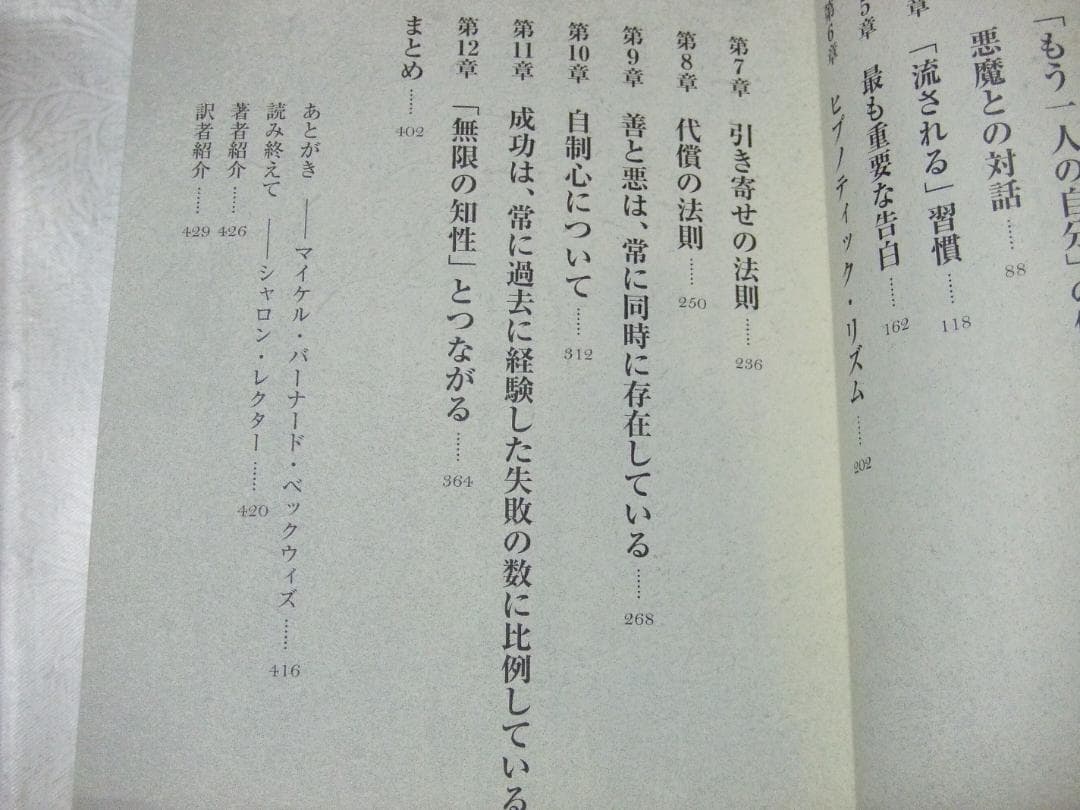 「もう一人の自分」の
悪魔との対話……88
章 「流される」習慣……118
5章 最も重要な告白……162
第6章 ヒプノティック・リズム……202
第7章 引き寄せの法則……236
第8章 代償の法則……250
第9章 善と悪は、常に同時に存在している……268
第10章 自制心について……312
第11章 成功は、常に過去に経験した失敗の数に比例している
第12章 「無限の知性」とつながる……364
まとめ……402
あとがき ――マイケル・バーナード・ベックウィズ……416
読み終えて ――シャロン・レクター……420
著者紹介……426
訳者紹介……429